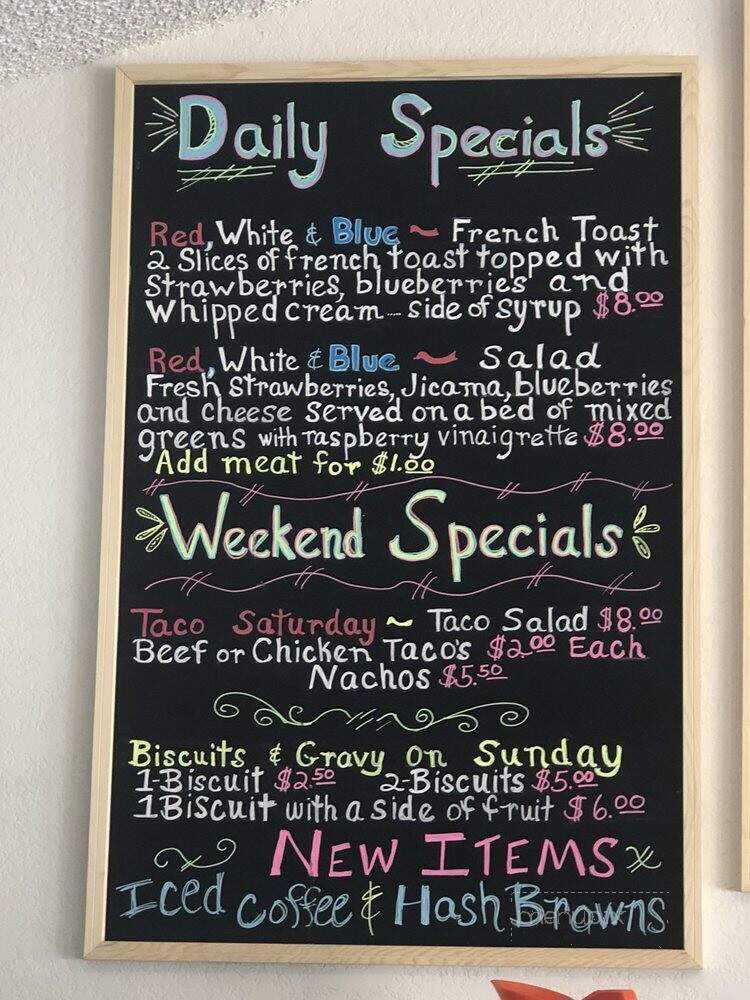 Daily Specials
Red, White & Blue ~ French Toast
2 Slices of french toast topped with
Strawberries, blueberries and
Whipped cream... side of syrup $8.00
Red, White & Blue ~ Salad
Fresh Strawberries, Jicama, blueberries
and cheese served on a bed of mixed
greens with raspberry vinaigrette $8.00
Add meat for $1.00
Weekend Specials
Taco Saturday ~ Taco Salad $8.00
Beef or Chicken Taco's $2.00 Each
Nachos $5.50
Biscuits & Gravy on Sunday
1-Biscuit $2.50 2-Biscuits $5.00
1 Biscuit with a side of fruit $6.00
New Items
Iced coffee & Hash Browns